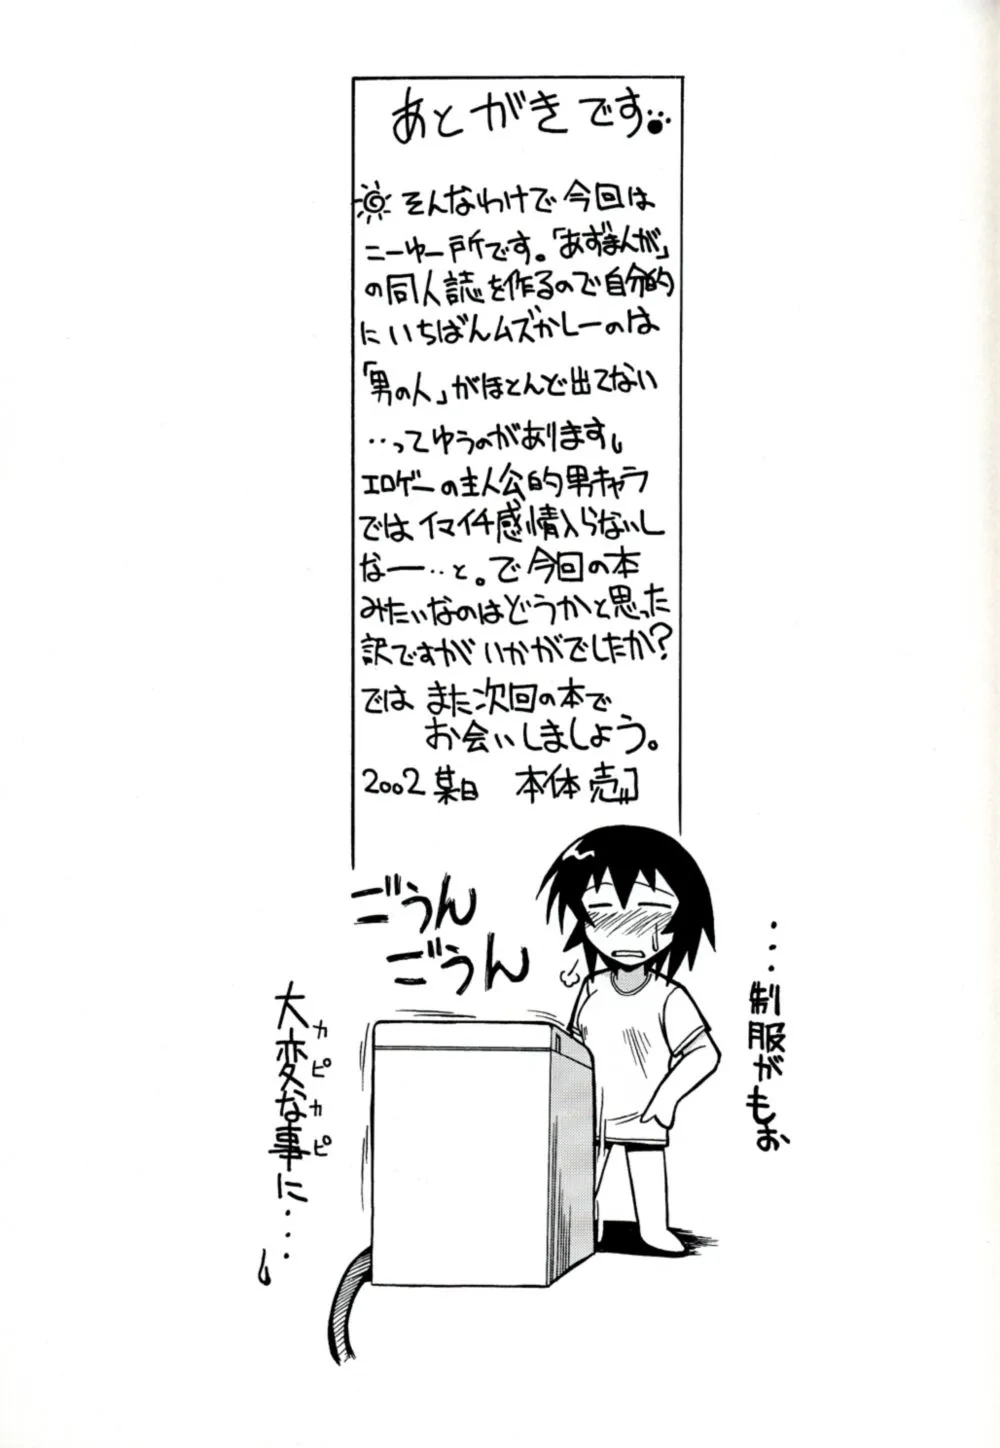 あとがきです
そんなわけで今回は
こーゆー所です。「あずまんが」
の同人誌を作るので自分的
にいちばんムズかしーのは
「男の人」がほとんど出てない
‥ってゆうのがあります。
エロゲーの主人公的男キャラ
ではイマイチ感情入らないし
なー‥と。で今回の本
みたいなのはどうかと思った
訳ですがいかがでしたか?
では また次回の本で
お会いしましょう。
2002某日 本体売
ごうん
ごうん
・・・制服がもお
大変な事に・・・
カピカピ